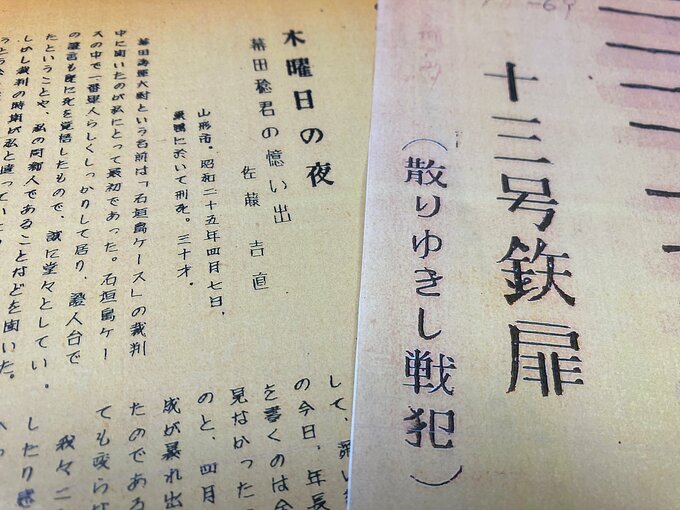 十三号鉄扉
(散りゆきし戦犯)
木曜日の夜
幕田稔君の憶い出
佐藤 吉直
山形市。昭和二十五年四月七日、
巣鴨に於いて刑死。三十才。
幕田海軍大尉という名前は「石垣島ケース」の裁判
中に聞いたのが私にとって最初であった。石垣島ケー
スの中で一番軍人らしくしっかりして居り、證人台で
の證言も既に死を覚悟したもので、誠に堂々としてい
たということや、私の同郷人であることなどを聞いた。
しかし裁判の時期が私と違ってい
して、深い
の今日、年長
を書くのは今
見なかった
のと、四月
成が暴れ出
たのである
ても
我々二
したり感